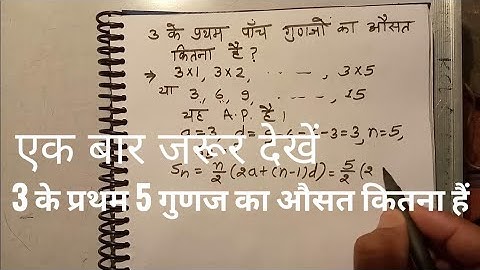 3 के प्रथम पाँच गुणजों का औसत
कितना है ?
→ 3×1, 3×2, ---, 3×5
या 3, 6, 9, ---, 15
यह A.P. है।
a=3, d=6-3=3, n=5,
एक बार जरूर देखें
Sn = n/2 (2a+(n-1)d) = 5/2 (2
3 के प्रथम 5 गुणज का औसत कितना हैं